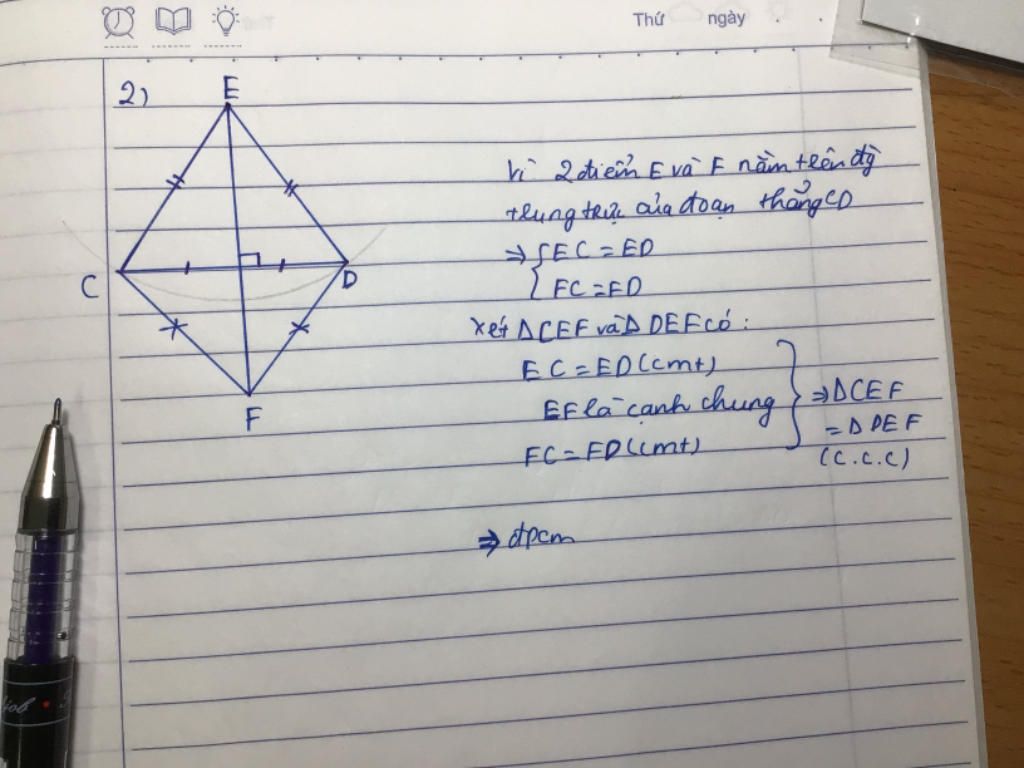 Thứ ngày
2)
E
C
D
F
Vì 2 điểm E và F nằm trên đg
trung trực của đoạn thẳng CD
⇒ { EC = ED
FC = FD
Xét Δ CEF và Δ DEF có:
EC = ED (cmt)
EF là cạnh chung
FC = FD (cmt)
⇒ Δ CEF
= Δ DEF
(c.c.c)
⇒ đpcm